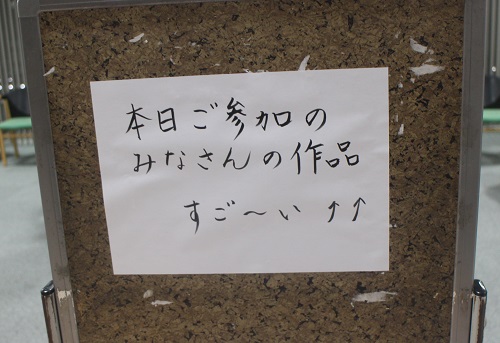 本日ご参加の
みなさんの作品
すご〜い↑↑